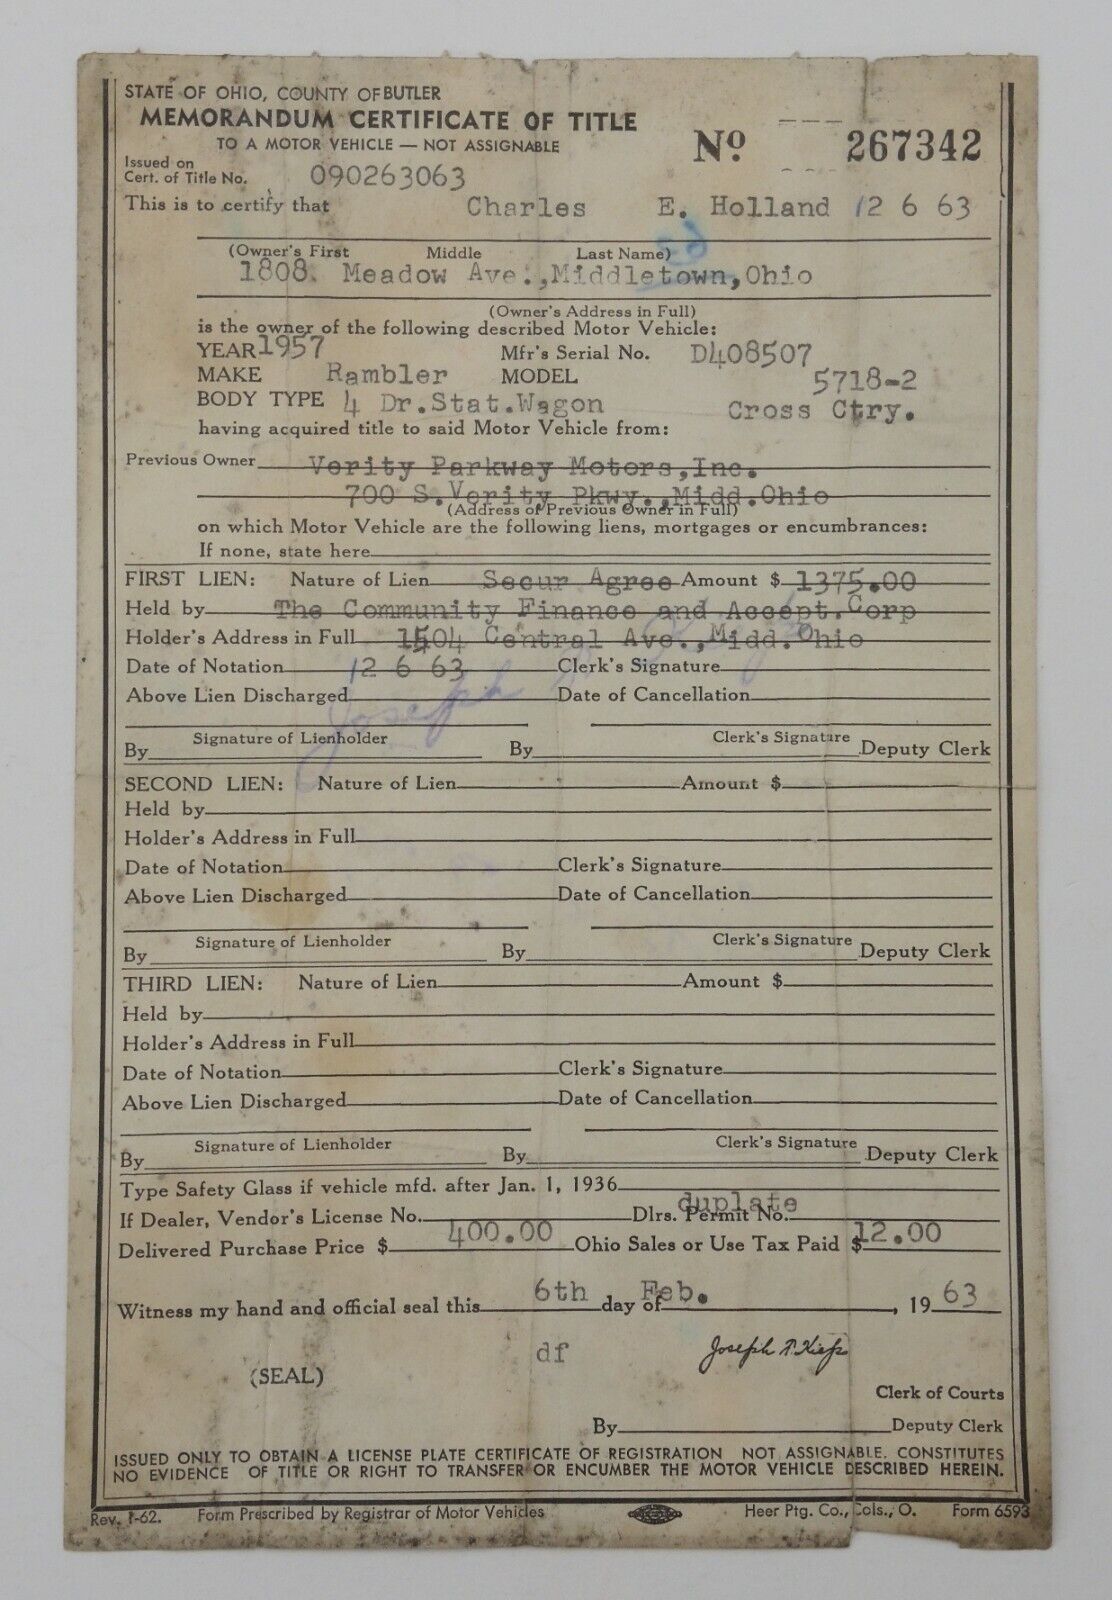 STATE OF OHIO, COUNTY OF BUTLER
MEMORANDUM CERTIFICATE OF TITLE
TO A MOTOR VEHICLE — NOT ASSIGNABLE
No. 267342
Issued on
Cert. of Title No. 090263063
This is to certify that Charles E. Holland 12 6 63
(Owner's First Middle Last Name)
1808. Meadow Ave.,Middletown,Ohio
(Owner's Address in Full)
is the owner of the following described Motor Vehicle:
YEAR 1957 Mfr's Serial No. D408507
MAKE Rambler MODEL 5718-2
BODY TYPE 4 Dr.Stat.Wagon Cross Ctry.
having acquired title to said Motor Vehicle from:
Previous Owner Verity Parkway Motors,Inc.
700 S.Verity Pkwy.,Midd.Ohio
(Address of Previous Owner in Full)
on which Motor Vehicle are the following liens, mortgages or encumbrances:
If none, state here
FIRST LIEN: Nature of Lien Secur Agree Amount $ 1375.00
Held by The Community Finance and Accept.Corp
Holder's Address in Full 1504 Central Ave.,Midd.Ohio
Date of Notation 12 6 63 Clerk's Signature
Above Lien Discharged Joseph Date of Cancellation
Signature of Lienholder Clerk's Signature
By By Deputy Clerk
SECOND LIEN: Nature of Lien Amount $
Held by
Holder's Address in Full
Date of Notation Clerk's Signature
Above Lien Discharged Date of Cancellation
Signature of Lienholder Clerk's Signature
By By Deputy Clerk
THIRD LIEN: Nature of Lien Amount $
Held by
Holder's Address in Full
Date of Notation Clerk's Signature
Above Lien Discharged Date of Cancellation
Signature of Lienholder Clerk's Signature
By By Deputy Clerk
Type Safety Glass if vehicle mfd. after Jan. 1, 1936
duplate
If Dealer, Vendor's License No. Dlrs. Permit No.
Delivered Purchase Price $ 400.00 Ohio Sales or Use Tax Paid $ 12.00
Witness my hand and official seal this 6th day of Feb. , 19 63
df Joseph T.
(SEAL)
Clerk of Courts
By Deputy Clerk
ISSUED ONLY TO OBTAIN A LICENSE PLATE CERTIFICATE OF REGISTRATION NOT ASSIGNABLE. CONSTITUTES
NO EVIDENCE OF TITLE OR RIGHT TO TRANSFER OR ENCUMBER THE MOTOR VEHICLE DESCRIBED HEREIN.
Rev. 1-62. Form Prescribed by Registrar of Motor Vehicles Heer Ptg. Co., Cols., O. Form 6593